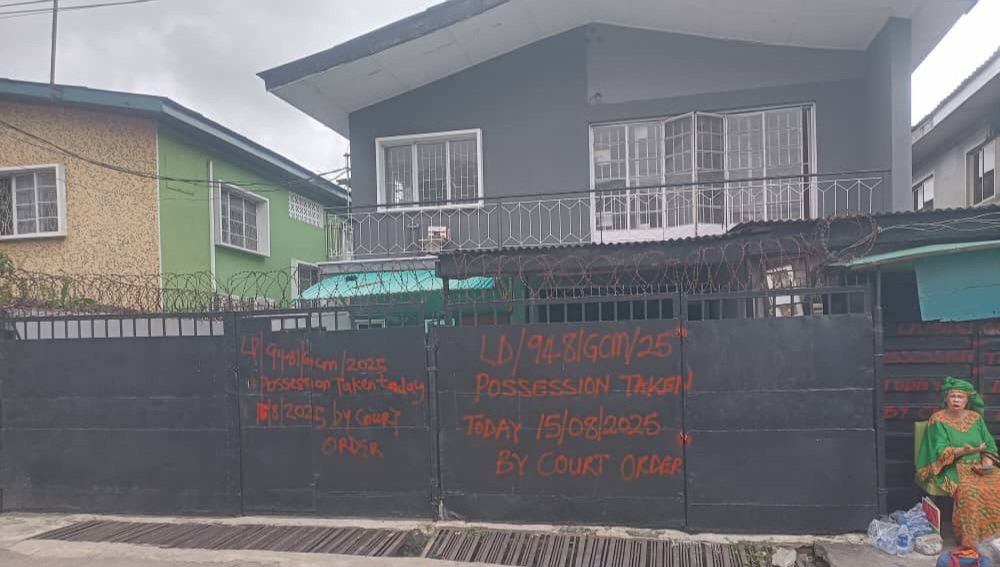 LD/948/GCM/2025
Possession Taken today
15/8/2025 by COURT
ORDER
LD/948/GCM/25
POSSESSION TAKEN
TODAY 15/08/2025
BY COURT ORDER
POSSESSION
TODAY
BY CO